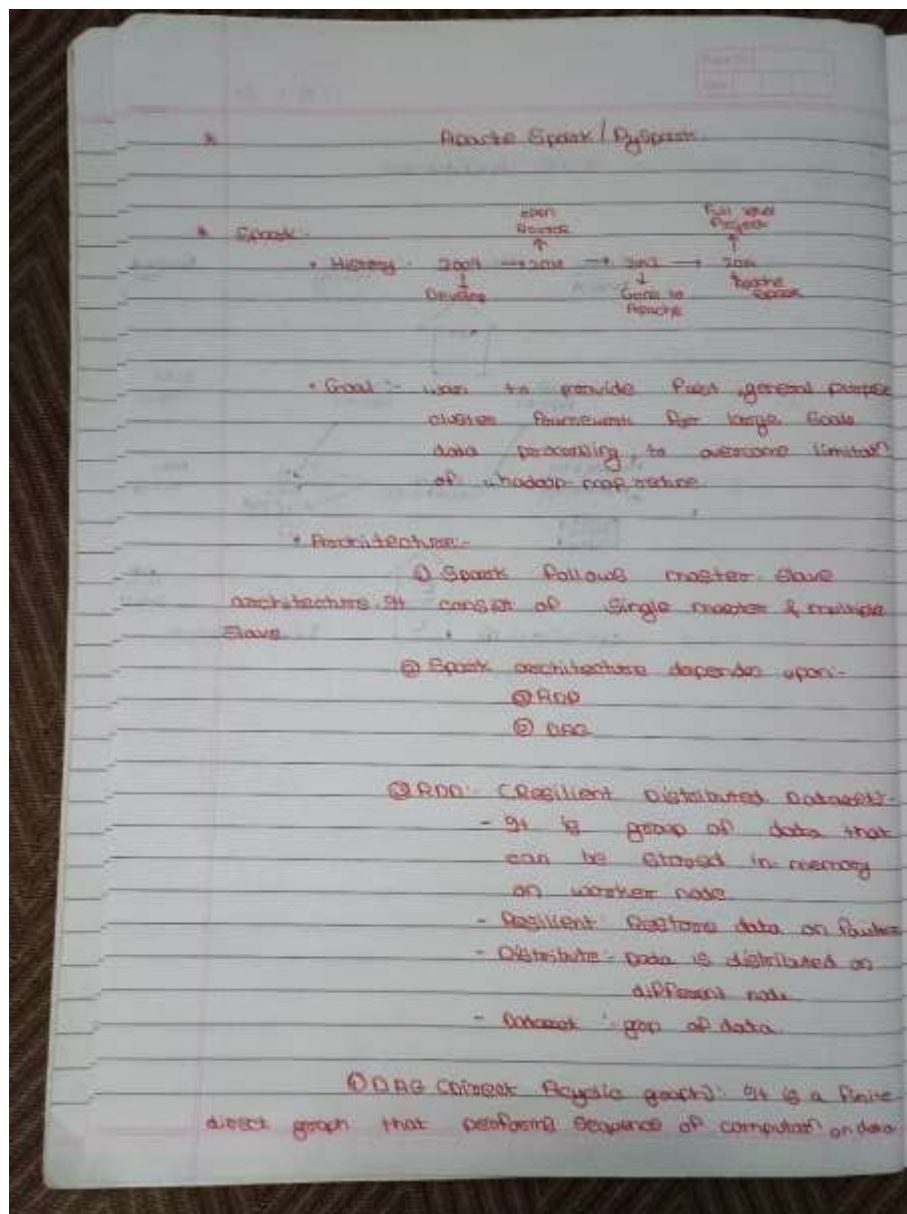 * Apache Spark / PySpark
* Spark:-
open Source
Full level Project
• History - 2009 → 2010 → → 
Develop
Gone to Apache
Apache Spark
• Goal :- was to provide fast, general purpose
cluster framework for large Scale
data processing, to overcome
of hadoop map reduce
• Architecture:-
① Spark follows master slave
architecture. It consist of Single master & multiple
Slave
② Spark architecture depends upon:-
ⓐ RDD
ⓑ DAG
ⓐ RDD:- (Resilient Distributed Dataset):-
- It is group of data that
can be Stored in-memory
on worker node
- Resilient: Restore data on
- Distribute - Data is distributed on
different node
- Dataset :- group of data
ⓑ DAG (Direct Acyclic graph): It is a finite
direct graph that performs Sequence of on data